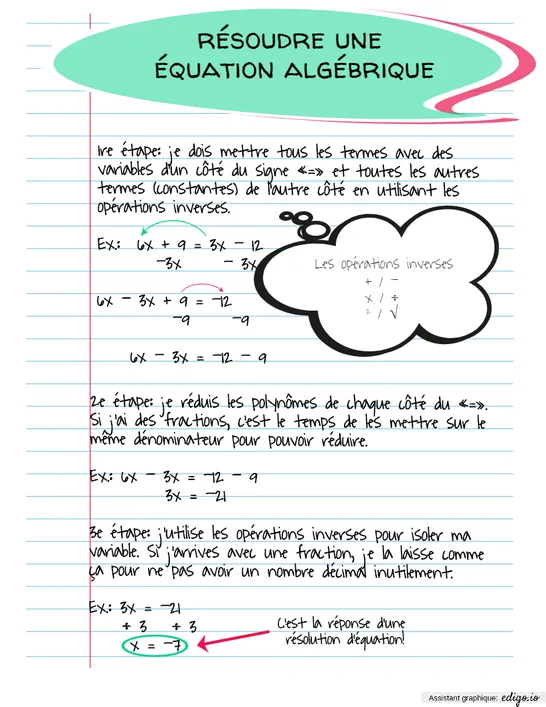 RÉSOUDRE UNE
ÉQUATION ALGÉBRIQUE
1re étape: je dois mettre tous les termes avec des
variables d'un côté du signe «=» et toutes les autres
termes (constantes) de l'autre côté en utilisant les
opérations inverses.
Ex: 6x + 9 = 3x - 12
-3x - 3x
6x - 3x + 9 = -12
-9 -9
6x - 3x = -12 - 9
Les opérations inverses
+ / -
x / ÷
² / √
2e étape: je réduis les polynômes de chaque côté du «=».
Si j'ai des fractions, c'est le temps de les mettre sur le
même dénominateur pour pouvoir réduire.
Ex: 6x - 3x = -12 - 9
3x = -21
3e étape: j'utilise les opérations inverses pour isoler ma
variable. Si j'arrives avec une fraction, je la laisse comme
ça pour ne pas avoir un nombre décimal inutilement.
Ex: 3x = -21
÷ 3 ÷ 3
x = -7
C'est la réponse d'une
résolution d'équation!
Assistant graphique: edigo.io